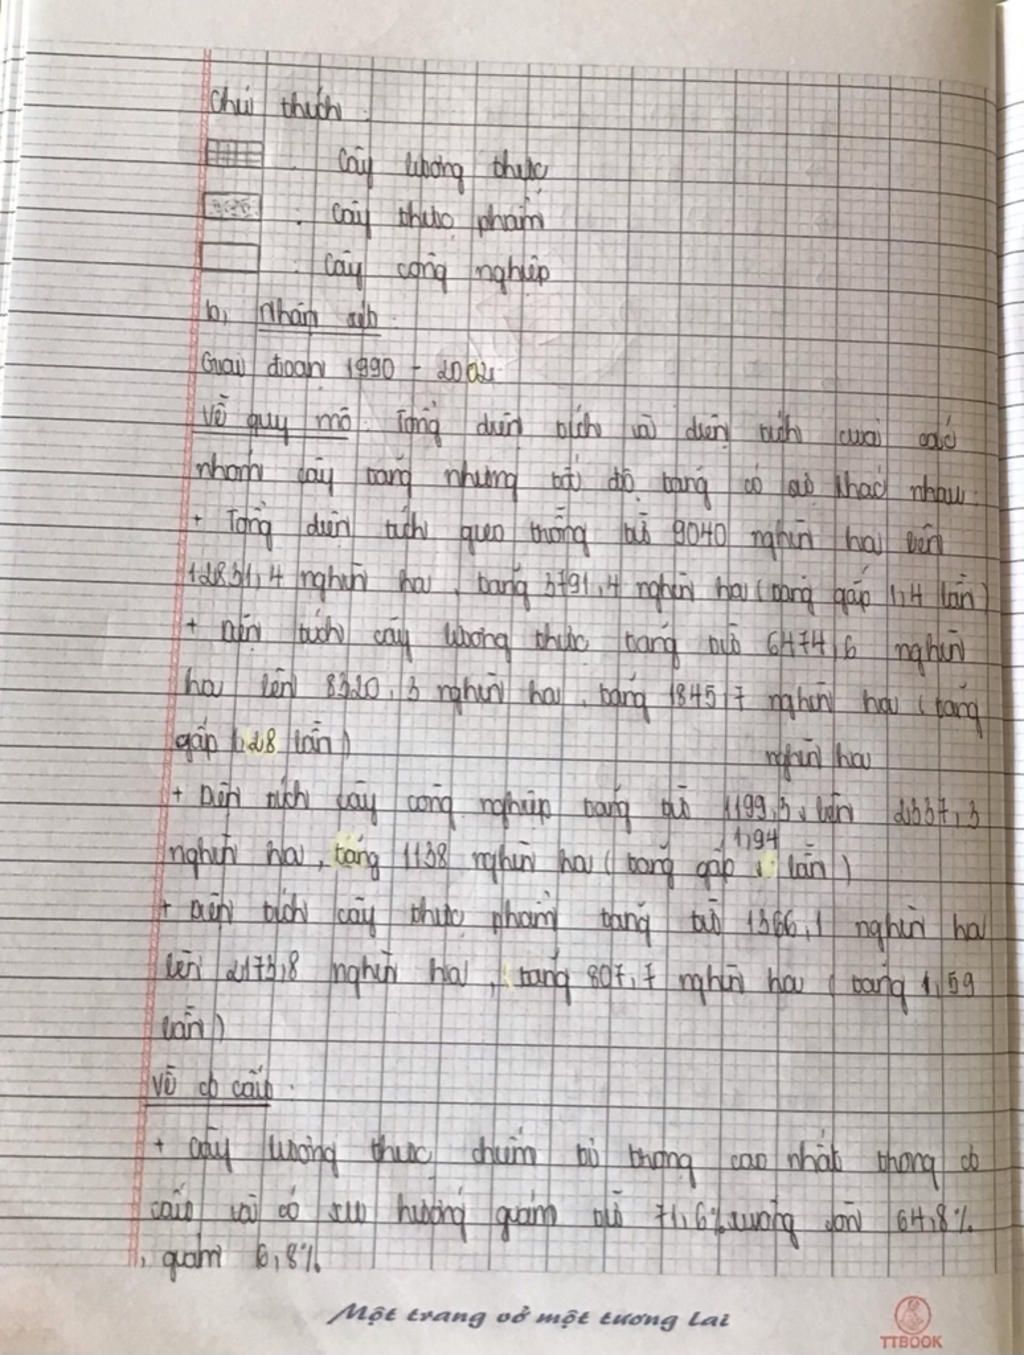 Chú thích :
: Cây lương thực
: Cây thực phẩm
: Cây công nghiệp
b, Nhận xét :
Giai đoạn 1990 - 2002
Về quy mô : Tổng diện tích và diện tích của các
nhóm cây tăng nhưng tốc độ tăng có sự khác nhau.
+ Tổng diện tích gieo trồng từ 9040 nghìn ha lên
12831,4 nghìn ha, tăng 3791,4 nghìn ha (tăng gấp 1,4 lần)
+ Diện tích cây lương thực tăng từ 6474,6 nghìn
ha lên 8320,3 nghìn ha, tăng 1845,7 nghìn ha (tăng
gấp 1,28 lần)
nghìn ha
+ Diện tích cây công nghiệp tăng từ 1199,3 lên 2337,3
1,94
nghìn ha, tăng 1138 nghìn ha (tăng gấp lần)
+ Diện tích cây thực phẩm tăng từ 1366,1 nghìn ha
lên 2173,8 nghìn ha, tăng 807,7 nghìn ha (tăng 1,59
lần)
Về cơ cấu :
+ Cây lương thực chiếm tỉ trọng cao nhất trong cơ
cấu và có xu hướng giảm từ 71,6% xuống còn 64,8%
, giảm 6,8%
Một trang vở một tương lai
TTBOOK